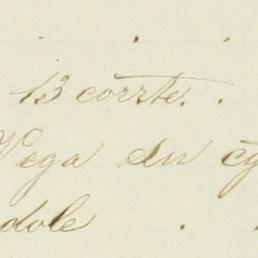 13 corrte. .
Vega en
dole . .